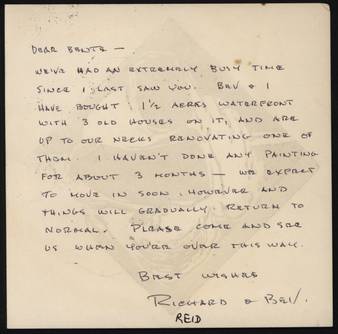 DEAR BENTE —
WE'VE HAD AN EXTREMELY BUSY TIME
SINCE I LAST SAW YOU. BEV & I
HAVE BOUGHT 1½ ACRES WATERFRONT
WITH 3 OLD HOUSES ON IT, AND ARE
UP TO OUR NECKS RENOVATING ONE OF
THEM. I HAVEN'T DONE ANY PAINTING
FOR ABOUT 3 MONTHS — WE EXPECT
TO MOVE IN SOON HOWEVER AND
THINGS WILL GRADUALLY RETURN TO
NORMAL. PLEASE COME AND SEE
US WHEN YOU'RE OVER THIS WAY.
BEST WISHES
RICHARD & BEV.
REID